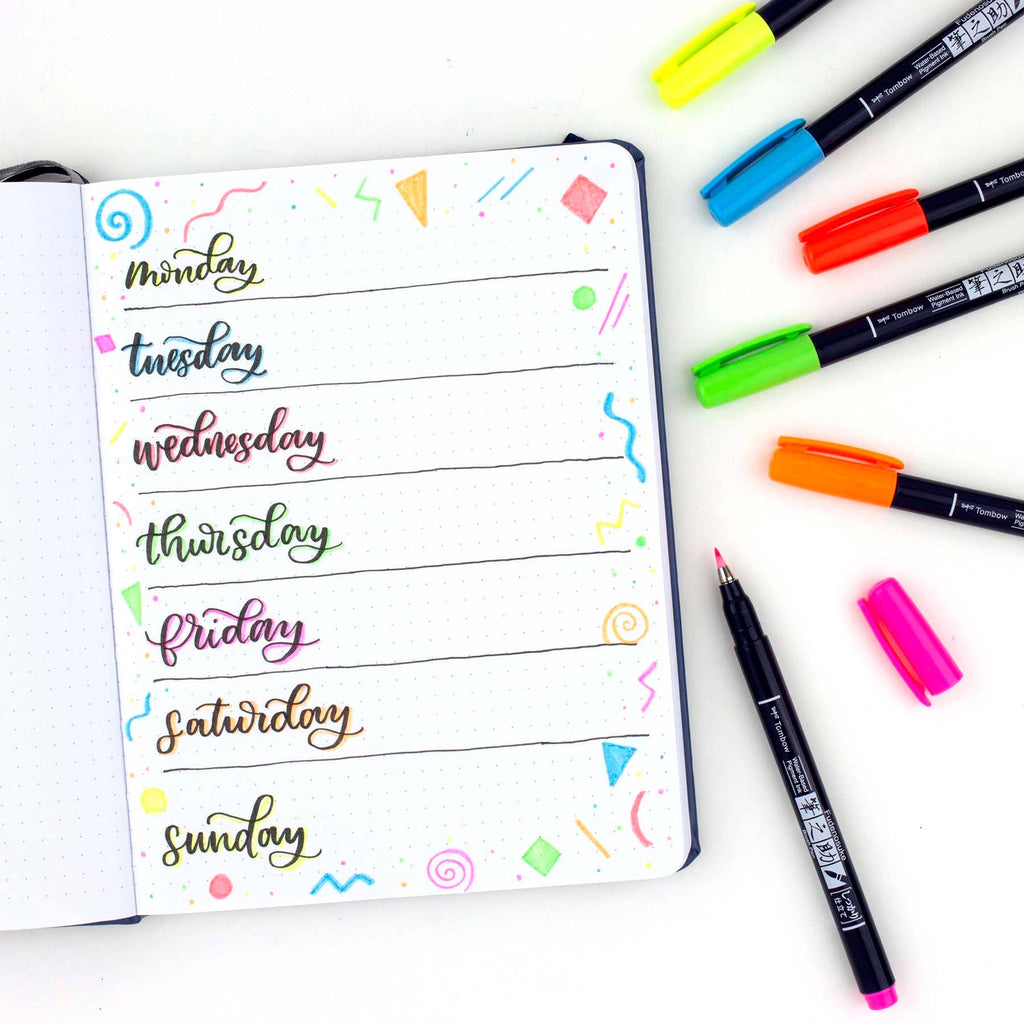 monday
tuesday
wednesday
thursday
friday
saturday
sunday
Fudenosuke
Water-Based
Pigment Ink
筆之助
Brush Pen
Tombow
Tombow
Fudenosuke
Water-Based
Pigment Ink
筆之助
Brush Pen
Tombow
Tombow
Tombow
Water-Based
Pigment Ink
筆之助
Fudenosuke